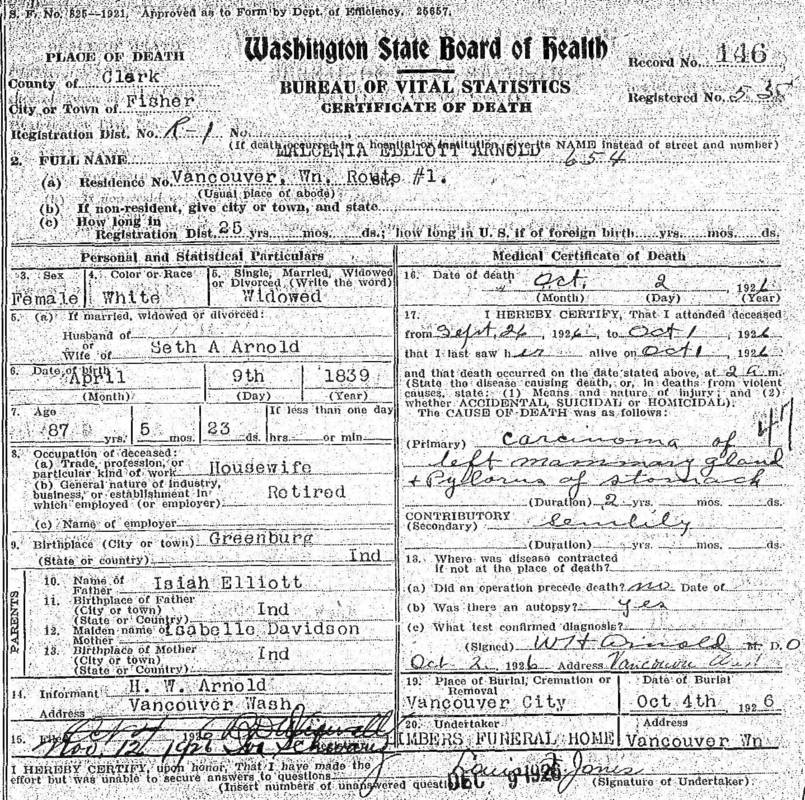 S. F. No. 825—1921. Approved as to Form by Dept. of Efficiency. 25657.
Washington State Board of Health
BUREAU OF VITAL STATISTICS
CERTIFICATE OF DEATH
Record No. 146
Registered No. 535
PLACE OF DEATH
County of Clark
City or Town of Fisher
Registration Dist. No. R-1 No.
(If death occurred in a hospital or institution, give its NAME instead of street and number)
2. FULL NAME MALCENIA ELLIOTT ARNOLD 654
(a) Residence No. Vancouver, Wn. Route #1.
(Usual place of abode)
(b) If non-resident, give city or town, and state
(c) How long in
Registration Dist. 25 yrs. mos. ds.; how long in U. S. if of foreign birth yrs. mos. ds.
Personal and Statistical Particulars
3. Sex
Female
4. Color or Race
White
5. Single, Married, Widowed
or Divorced (Write the word)
Widowed
5. (a) If married, widowed or divorced:
Husband of
or
Wife of Seth A Arnold
6. Date of birth
April 9th 1839
(Month) (Day) (Year)
7. Age If less than one day
87 yrs. 5 mos. 23 ds. hrs. or min.
8. Occupation of deceased:
(a) Trade, profession, or
particular kind of work Housewife
(b) General nature of industry,
business, or establishment in
which employed (or employer) Retired
(c) Name of employer
9. Birthplace (City or town) Greenburg
(State or country) Ind
PARENTS
10. Name of
Father Isiah Elliott
11. Birthplace of Father
(City or town)
(State or Country) Ind
12. Maiden name of Isabelle Davidson
Mother
13. Birthplace of Mother
(City or town) Ind
(State or Country)
14. Informant H. W. Arnold
Address Vancouver Wash
15. Filed Oct 4 1926
Nov. 12 1926
Medical Certificate of Death
16. Date of death Oct. 2, 1926
(Month) (Day) (Year)
17. I HEREBY CERTIFY, That I attended deceased
from Sept. 26, 1926, to Oct 1 1926
that I last saw her alive on Oct 1 1926
and that death occurred on the date stated above, at 2 a.m.
(State the disease causing death, or, in deaths from violent
causes, state: (1) Means and nature of injury; and (2)
whether ACCIDENTAL, SUICIDAL or HOMICIDAL).
The CAUSE OF DEATH was as follows:
47
(Primary) carcinoma of
left mammary gland
+ Pyllorus of stomach
(Duration) 2 yrs. mos. ds.
CONTRIBUTORY
(Secondary) senility
(Duration) yrs. mos. ds.
18. Where was disease contracted
if not at the place of death?
(a) Did an operation precede death? no Date of
(b) Was there an autopsy? yes
(c) What test confirmed diagnosis?
(Signed) W H Arnold M. D. O
Oct 2, 1926 Address Vancouver
19. Place of Burial, Cremation or
Removal
Vancouver City
Date of Burial
Oct 4th 1926
20. Undertaker
IMBERS FUNERAL HOME
Address
Vancouver Wn
I HEREBY CERTIFY, upon honor, That I have made the
effort but was unable to secure answers to questions
(Insert numbers of unanswered questions)
DEC 9 1926
Jones
(Signature of Undertaker).